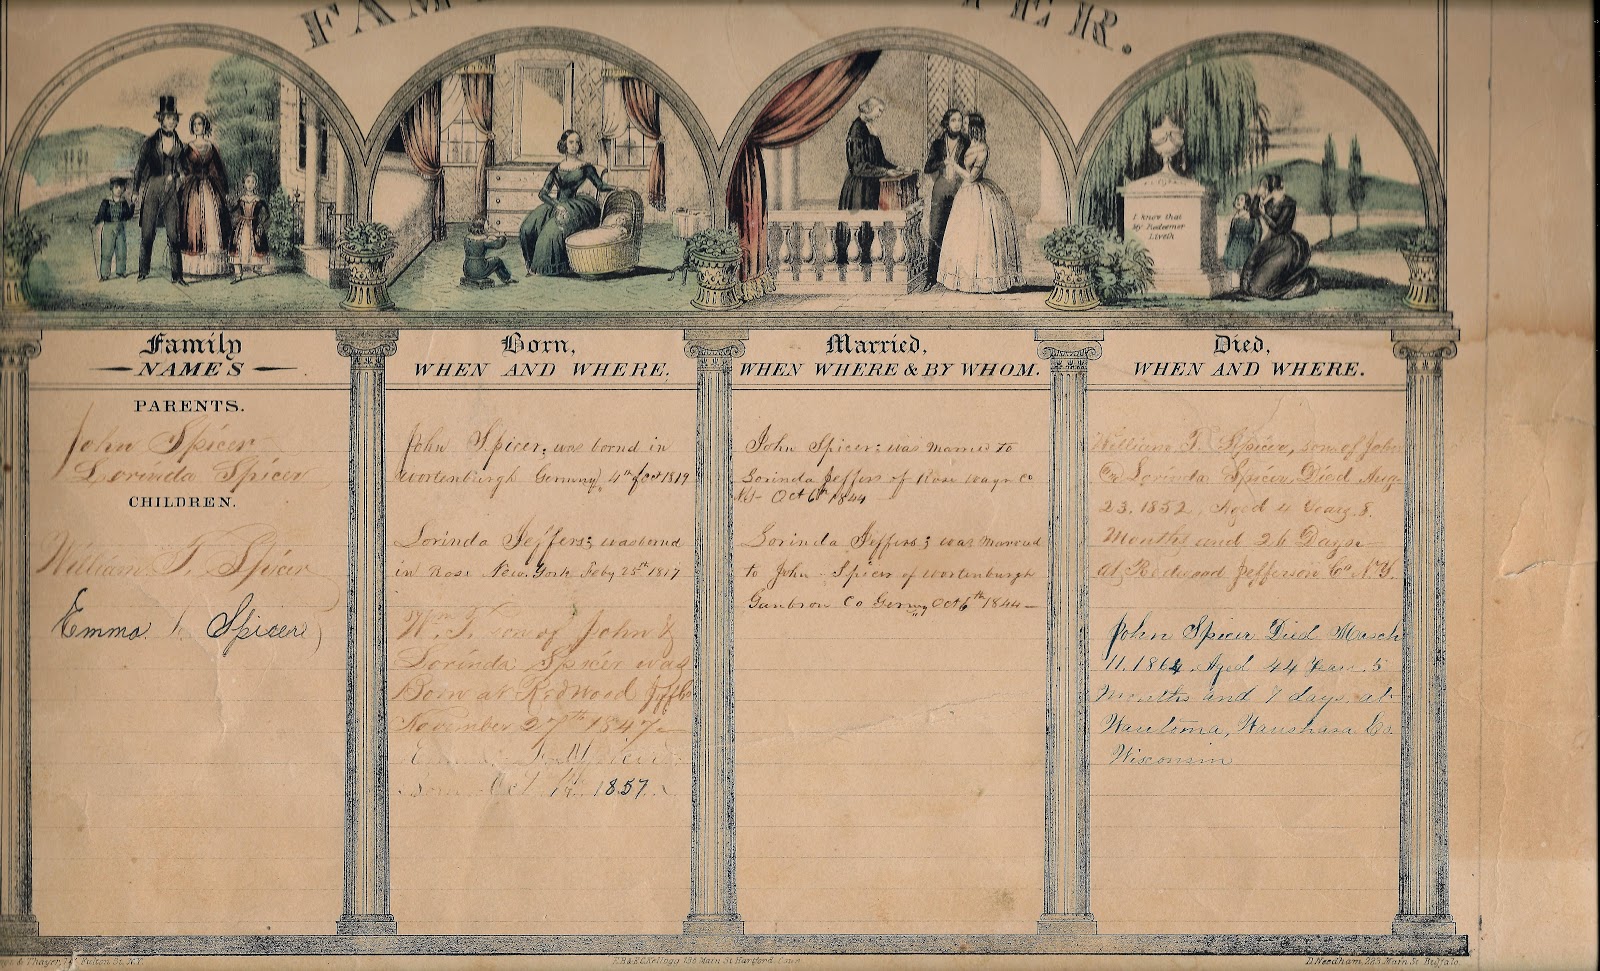 FAM TER.
I know that
My Redeemer
Liveth
Family
NAMES
PARENTS.
John Spicer
Lorinda Spicer
CHILDREN.
William T. Spicer
Emma Spicer
Born,
WHEN AND WHERE.
John Spicer, was bornd in
Wortenburgh Germny 4th 1819
Lorinda Jeffers; was bornd
in Rose New. York Feby 25th 1817
Wm T. son of John &
Lorinda Spicer was
Born at Redwood Jeff Co
November 27th 1847
Born Oct 1857
Married,
WHEN WHERE & BY WHOM.
John Spicer; was Married to
Lorinda Jeffers of Rose Wayn Co
Oct 6th 1844
Lorinda Jeffers; was Maried
to John Spicer of Wortenburgh
Co Germny Oct 6th 1844
Died,
WHEN AND WHERE.
William T. Spicer, son of John
& Lorinda Spicer Died Aug
23. 1852, Aged 4 Years. 8.
Months and 26 Days
at Redwood Jefferson Co N.Y.
John Spicer Died March
11. 1864. Aged 44 Years. 5
Months and 7 days, at
Wautoma, Waushara Co
Wisconsin
& Thayer, Fulton St. N.Y.
E.B. & E.C. Kellogg 136 Main St Hartford Conn
D. Needham, 223 Main St Buffalo.